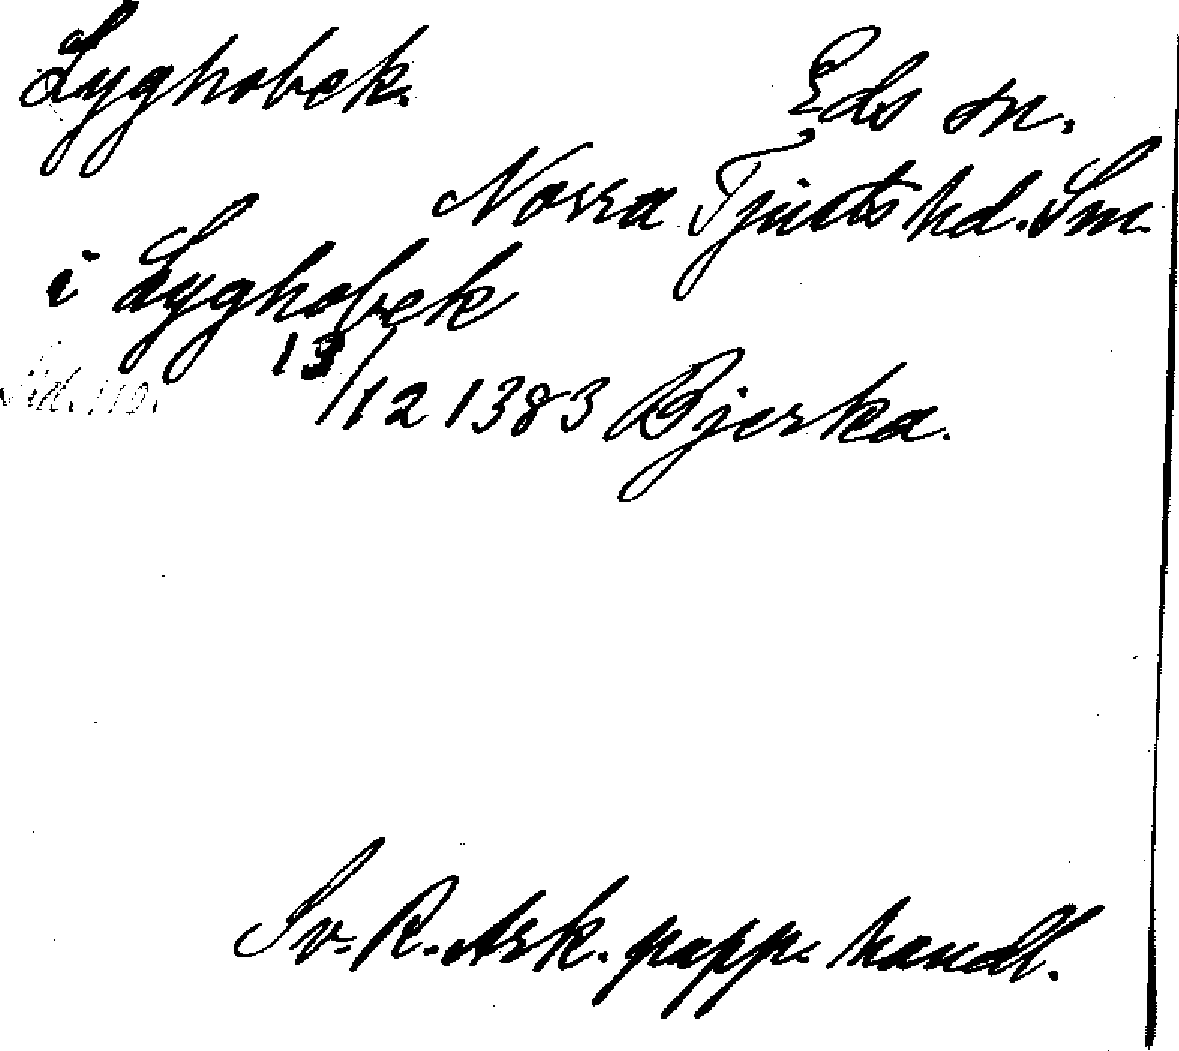 Lyghobek. Eds sn.
Norra Tjusts hd. Sm.
i Lyghobek
13/12 1383 Bjerka.
Sv. R. Ark. papp. handl.